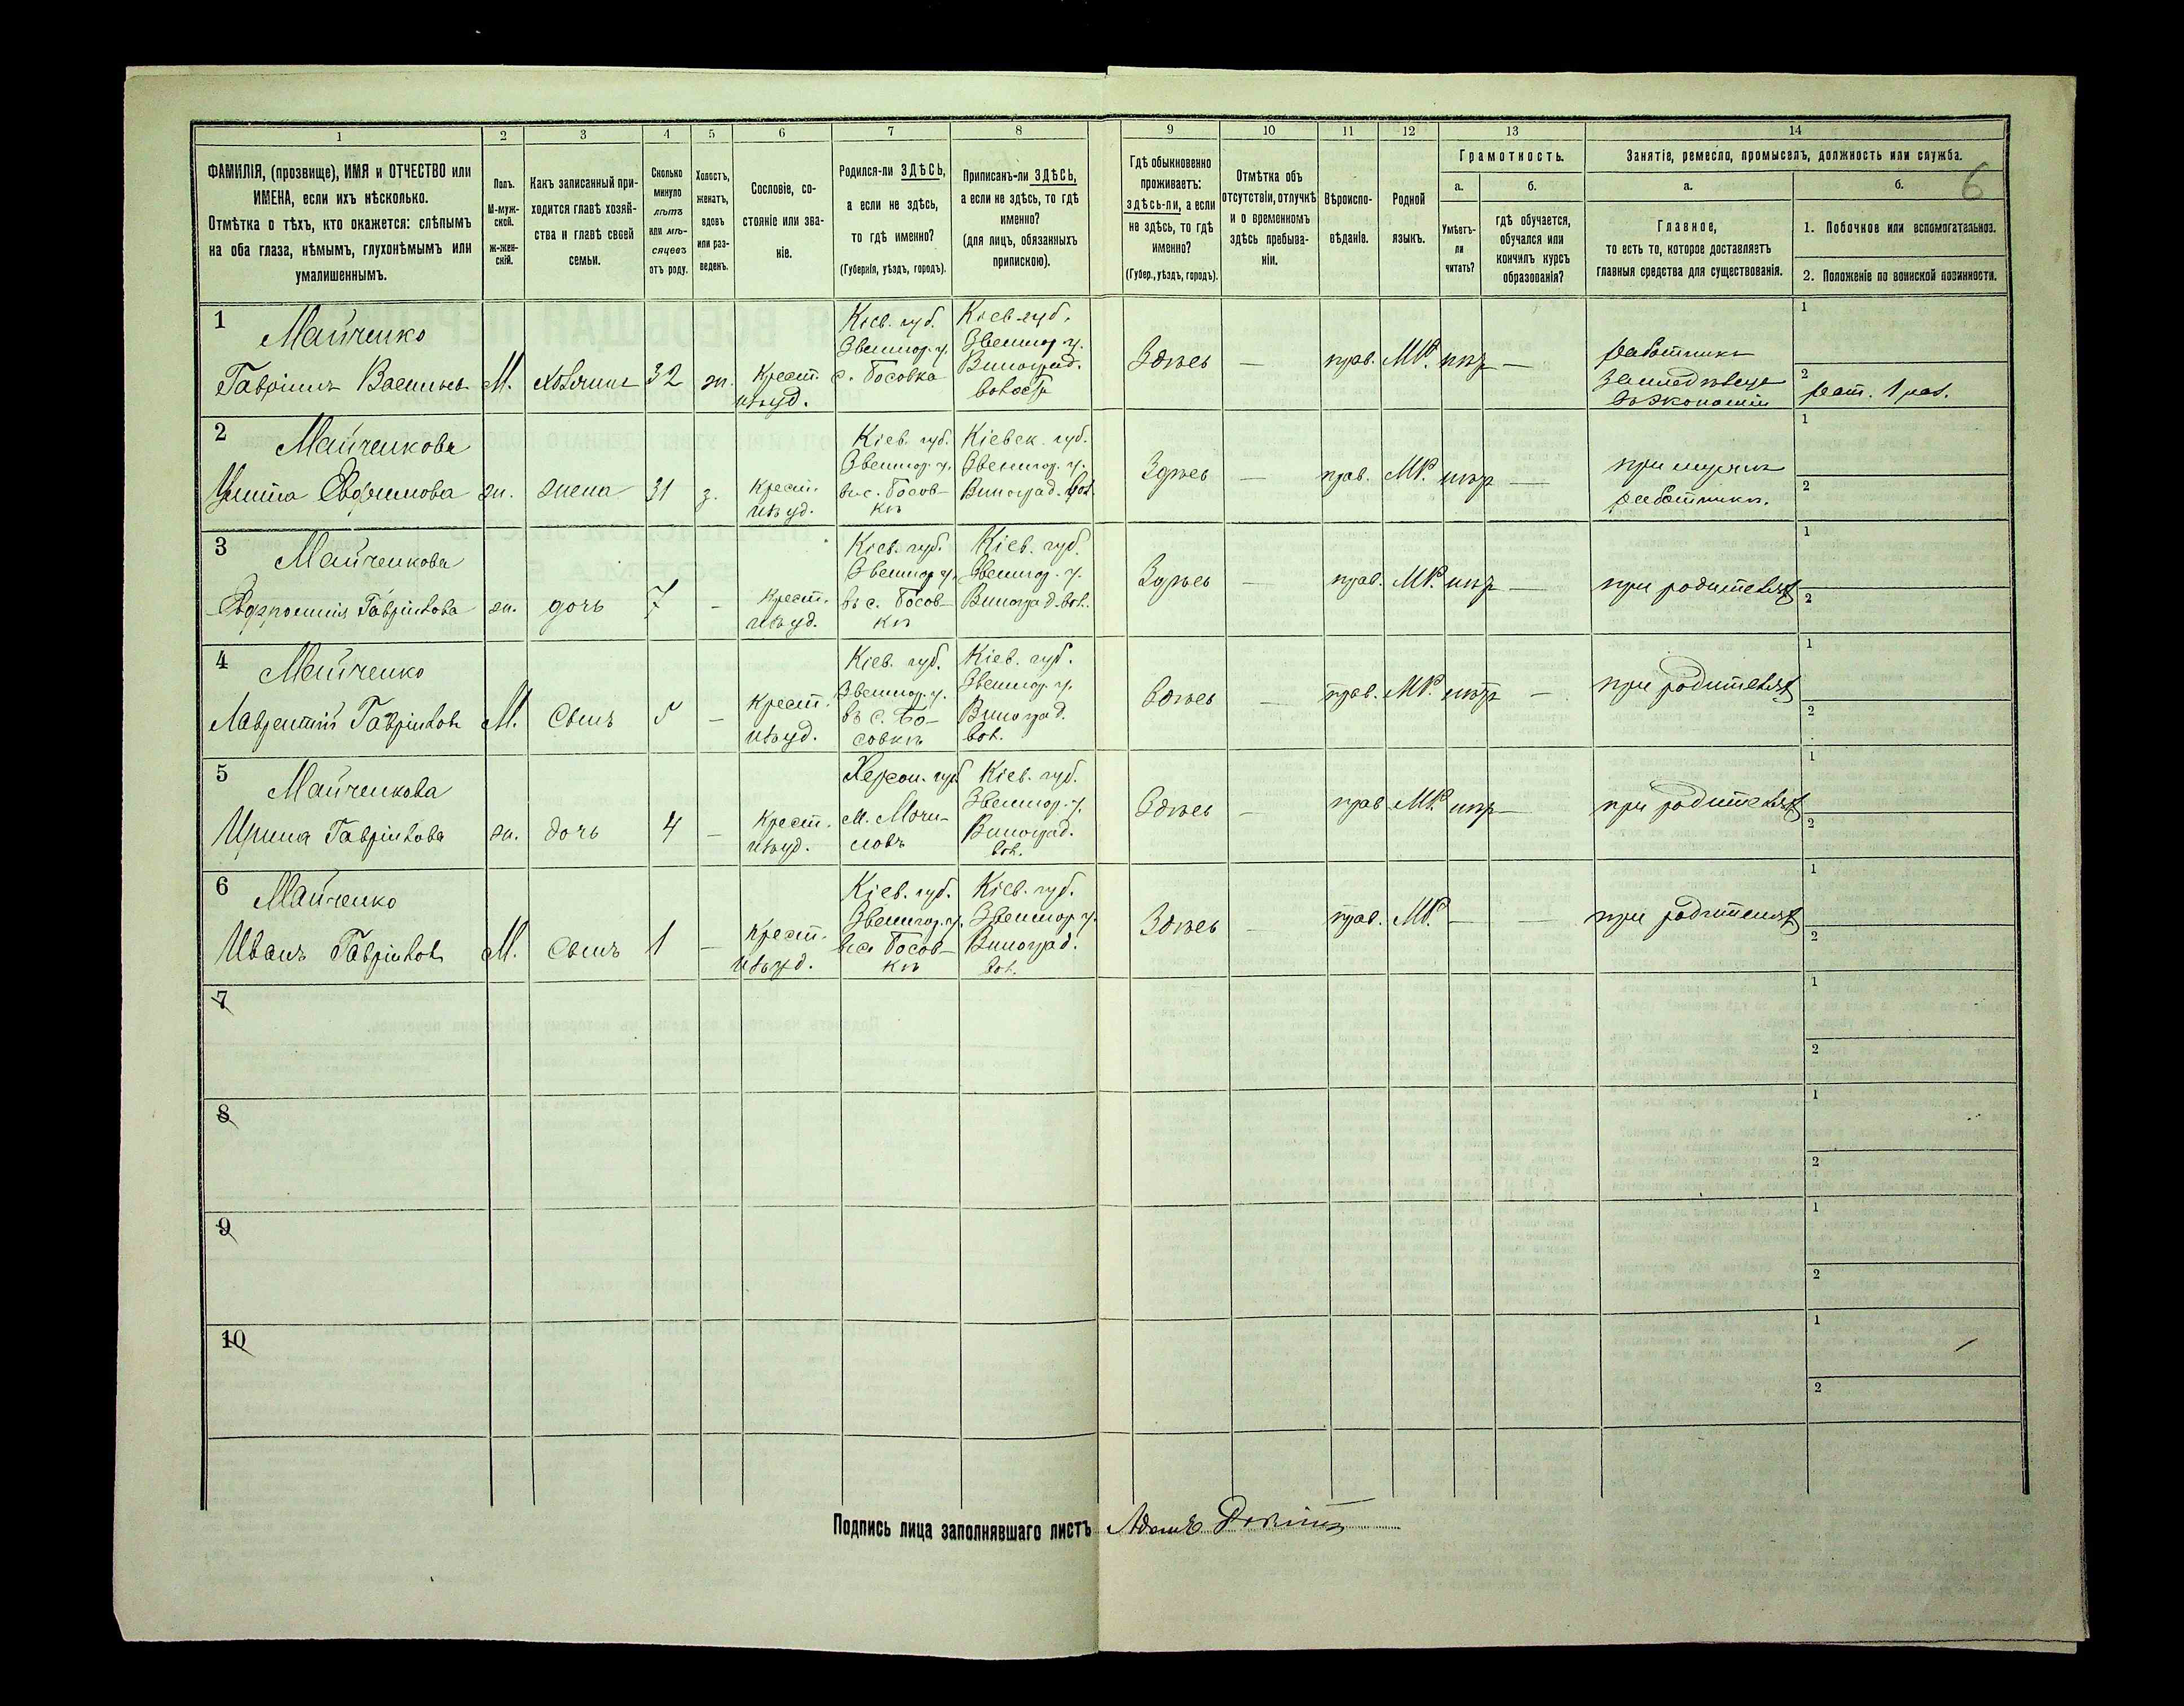 1 2 3 4 5 6 7 8 9 10 11 12 13 14
6
ФАМИЛІЯ, (прозвище), ИМЯ и ОТЧЕСТВО или
ИМЕНА, если ихъ нѣсколько.
Отмѣтка о тѣхъ, кто окажется: слѣпымъ
на оба глаза, нѣмымъ, глухонѣмымъ или
умалишеннымъ.
Полъ.
М-муж-
ской.
ж-жен-
скій.
Какъ записанный при-
ходится главѣ хозяй-
ства и главѣ своей
семьи.
Сколько
минуло
лѣтъ
или мѣ-
сяцевъ
отъ роду.
Холостъ,
женатъ,
вдовъ
или раз-
веденъ.
Сословіе, со-
стояніе или зва-
ніе.
Родился-ли ЗДѢСЬ,
а если не здѣсь,
то гдѣ именно?
(Губернія, уѣздъ, городъ).
Приписанъ-ли ЗДѢСЬ,
а если не здѣсь, то гдѣ
именно?
(для лицъ, обязанныхъ
припискою).
Гдѣ обыкновенно
проживаетъ:
здѣсь-ли, а если
не здѣсь, то гдѣ
именно?
(Губер., уѣздъ, городъ).
Отмѣтка объ
отсутствіи, отлучкѣ
и о временномъ
здѣсь пребыва-
ніи.
Вѣроиспо-
вѣданіе.
Родной
языкъ.
Грамотность.
а.
Умѣетъ-
ли
читать?
б.
гдѣ обучается,
обучался или
кончилъ курсъ
образованія?
Занятіе, ремесло, промыселъ, должность или служба.
а.
Главное,
то есть то, которое доставляетъ
главныя средства для существованія.
б.
1. Побочное или вспомогательное.
2. Положеніе по воинской повинности.
1
Майченко
Гавріилъ Васильевъ
М.
хозяинъ
32
ж.
Крест.
Кіев. губ.
Звенигор. у.
с. Босовка
Кіев. губ.
Звенигор. у.
Виноград.
волость
Здѣсь
—
прав.
МР.
нѣт
—
работникъ
въ экономіи
1
2
рат. 1 раз.
2
Майченкова
Евфимова
ж.
жена
31
з.
Крест.
Кіев. губ.
Звенигор. у.
въ с. Босов-
кѣ
Кіевск. губ.
Звенигор. у.
Виноград. вол.
Здѣсь
—
прав.
МР.
нѣт
—
при мужѣ
1
2
3
Майченкова
Евфросинія Гаврилова
ж.
дочь
7
—
Крест.
Кіев. губ.
Звенигор. у.
въ с. Босов-
кѣ
Кіев. губ.
Звенигор. у.
Виноград. вол.
Здѣсь
—
прав.
МР.
нѣт
—
при родителях
1
2
4
Майченко
Лаврентій Гаврилов
М.
Сынъ
5
—
Крест.
Кіев. губ.
Звенигор. у.
въ с. Бо-
совкѣ
Кіев. губ.
Звенигор. у.
Виноград.
вол.
Здѣсь
—
прав.
МР.
нѣт
—
при родителях
1
2
5
Майченкова
Ирина Гаврилова
ж.
дочь
4
—
Крест.
Херсон. губ.
Кіев. губ.
Звенигор. у.
Виноград.
вол.
Здѣсь
—
прав.
МР.
нѣт
—
при родителях
1
2
6
Майченко
Иванъ Гаврилов
М.
Сынъ
1
—
Крест.
Кіев. губ.
Звенигор. у.
въ с. Босов-
кѣ
Кіев. губ.
Звенигор. у.
Виноград.
вол.
Здѣсь
—
прав.
МР.
—
—
при родителях
1
2
7
1
2
8
1
2
9
1
2
10
1
2
Подпись лица заполнявшаго листъ